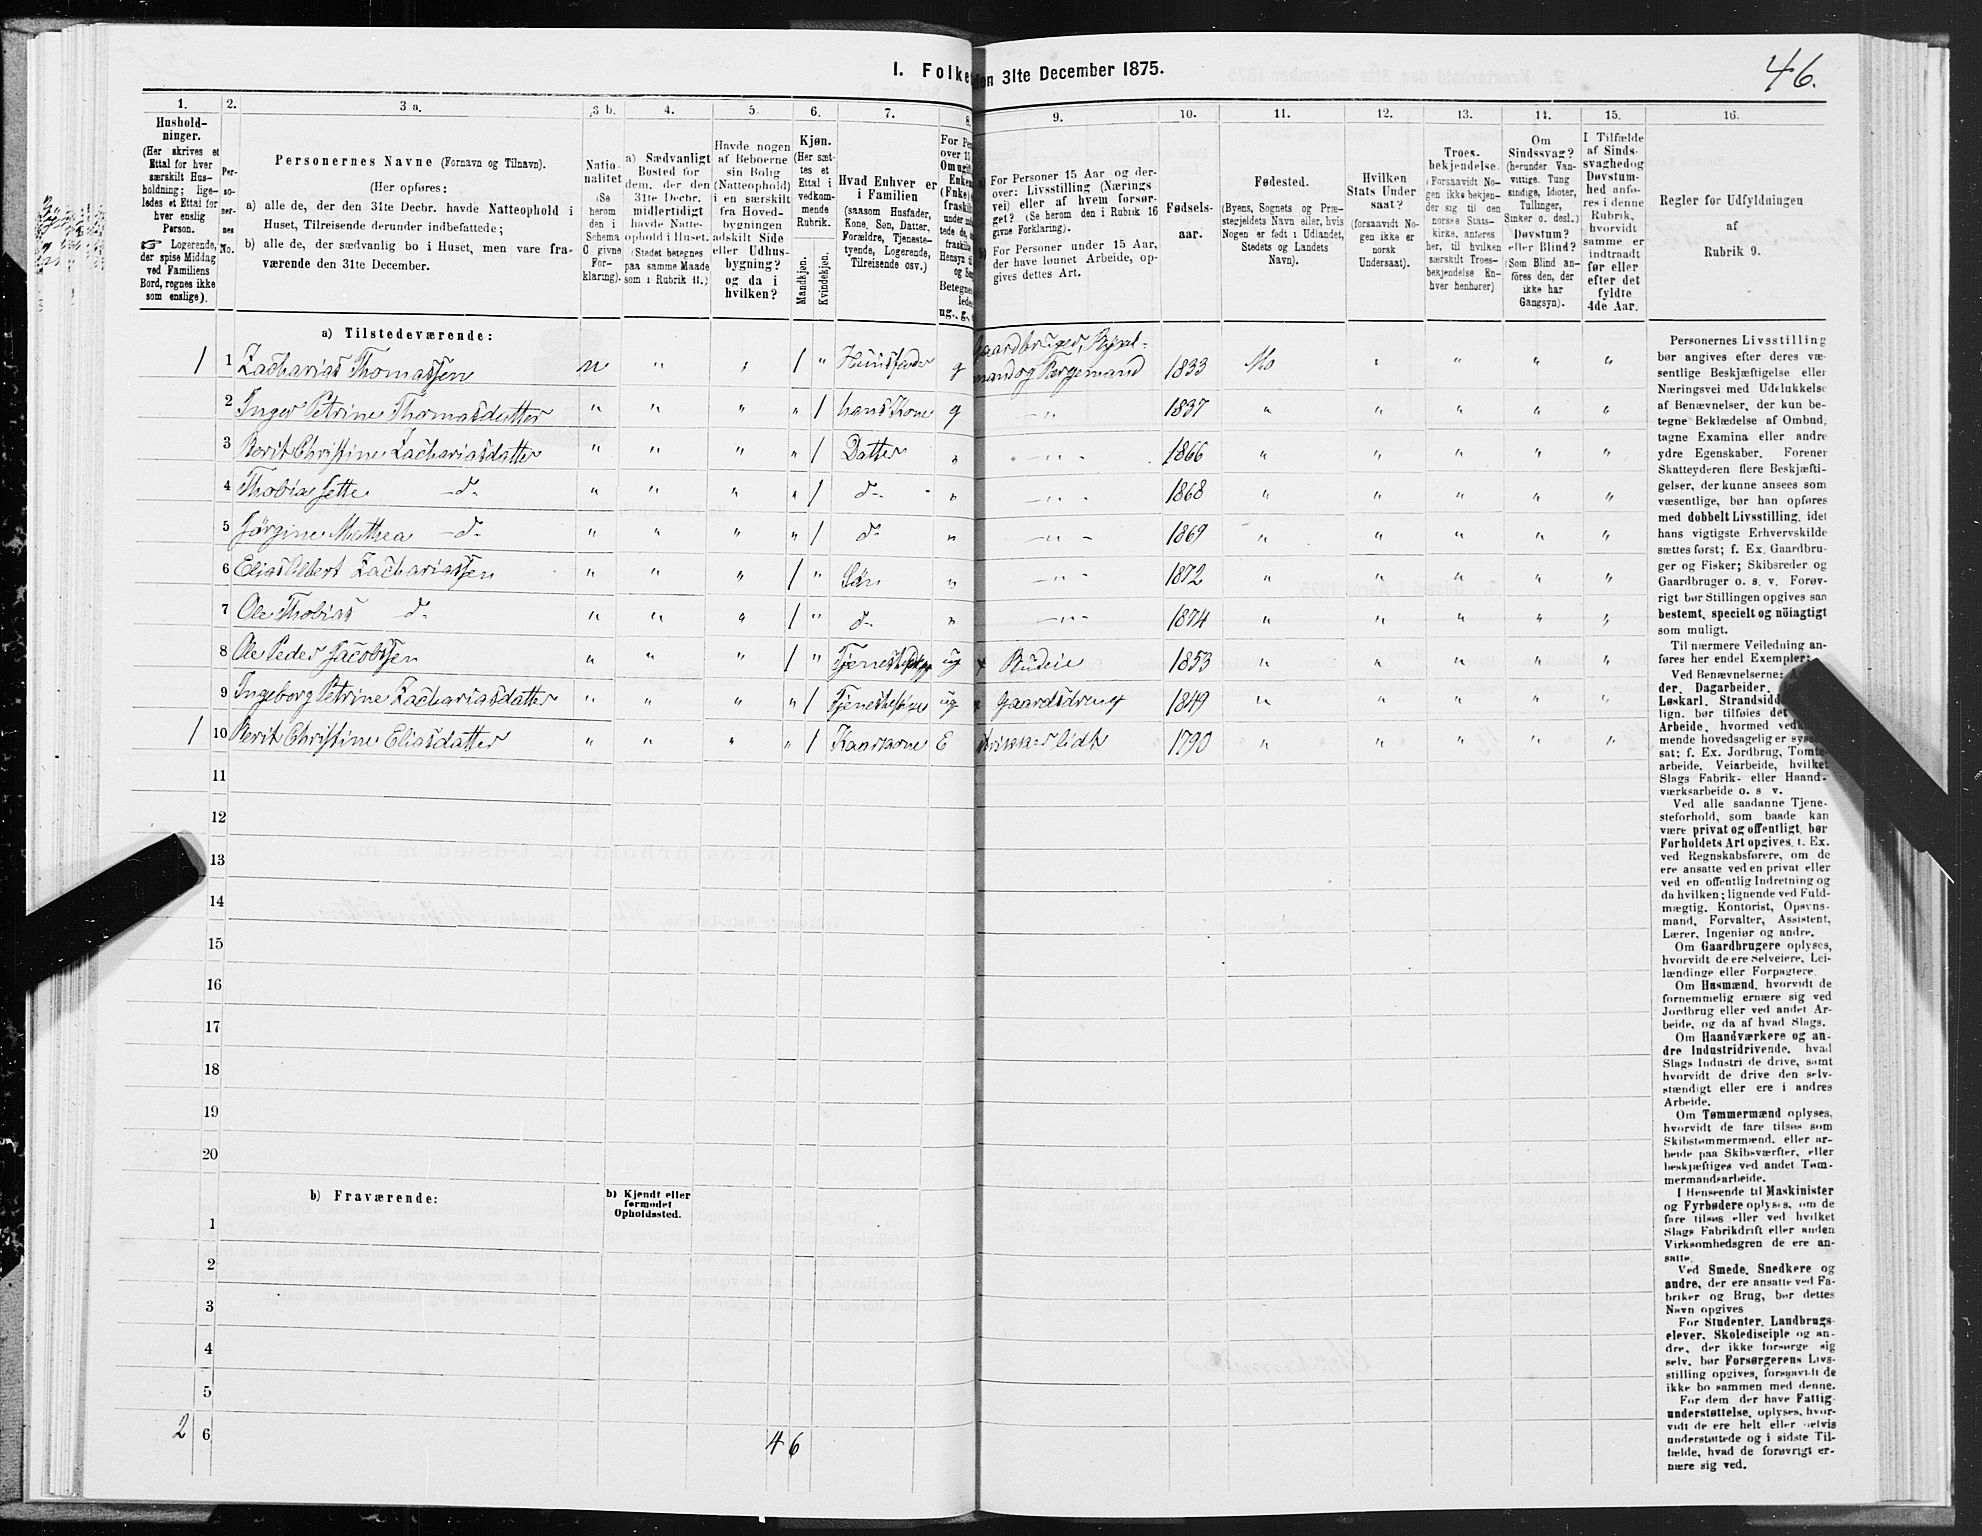 I. Folke
den 31te December 1875.
46.
1.
2.
3 a.
3 b.
4.
5.
6.
7.
8.
9.
10.
11.
12.
13.
14.
15.
16.
Hushold-
ninger.
(Her skrives et
Ettal for hver
særskilt Hus-
holdning; lige-
ledes et Ettal for
hver enslig
Person.
☞ Logerende,
der spise Middag
ved Familiens
Bord, regnes ikke
som enslige).
Per-
so-
ner-
nes
No.
Personernes Navne (Fornavn og Tilnavn).
(Her opføres:
a) alle de, der den 31te Decbr. havde Natteophold i
Huset, Tilreisende derunder indbefattede;
b) alle de, der sædvanlig bo i Huset, men vare fra-
værende den 31te December.
Natio-
nalitet
(Se
herom
den i
Schema
C givne
For-
klaring).
a) Sædvanligt
Bosted for
dem, der den
31te Decbr.
midlertidigt
havde Natte-
ophold i Huset.
(Stedet betegnes
paa samme Maade
som i Rubrik 11.)
Havde nogen
af Beboerne
sin Bolig
(Natteophold)
i en særskilt
fra Hoved-
bygningen
adskilt Side
eller Udhus-
bygning?
og da i
hvilken?
Kjøn.
(Her sæt-
tes et
Ettal i
vedkom-
mende
Rubrik.
Mandkjøn.
Kvindekjøn.
Hvad Enhver er
i Familien
(saasom Husfader,
Kone, Søn, Datter,
Forældre, Tjeneste-
tyende, Logerende,
Tilreisende osv.)
ug., g.,
For Personer 15 Aar og der-
over: Livsstilling (Nærings
vei) eller af hvem forsør-
get? (Se herom den i Rubrik 16
givne Forklaring).
For Personer under 15 Aar,
der have lønnet Arbeide, op-
gives dettes Art.
Fødsels-
aar.
Fødested.
(Byens, Sognets og Præ-
stegjeldets Navn eller, hvis
Nogen er født i Udlandet,
Stedets og Landets
Navn).
Hvilken
Stats Under
saat?
(forsaavidt No-
gen ikke er
norsk
Undersaat).
Troes-
bekjendelse.
(Forsaavidt No-
gen ikke bekjen-
der sig til den
norske Stats-
kirke, anføres
her, til hvilken
særskilt Troes-
bekjendelse En-
hver henhører)
Om
Sindssvag?
(herunder Van-
vittige, Tung
sindige, Idioter,
Tullinger,
Sinker o. desl.)
Døvstum?
eller Blind?
(Som Blind an-
føres den, der
ikke har
Gangsyn).
I Tilfælde
af Sinds-
svaghedog
Døvstum-
hed anfø-
res i denne
Rubrik,
hvorvidt
samme er
indtraadt
før eller
efter det
fyldte
4de Aar.
Regler for Udfyldningen
af
Rubrik 9.
a) Tilstedeværende:
1 1 Zacharias Thomassen n " " 1 " Huusfader g Gaardbruger,
mand og Borgemand 1833 Mo " " " "
2 Inger Petrine Thomasdatter " " " " 1 hans Kone g " 1837 " " " " "
3 Berit Christine Zachariasdatter " " " " 1 Datter " " 1866 " " " " "
4 Thobia Jette d- " " " " 1 d- " " 1868 " " " " "
5 Jørgine Mathea d- " " " " 1 d- " " 1869 " " " " "
6 Elias Albert Zachariassen " " " 1 " Søn " " 1872 " " " " "
7 Ole Thobias d- " " " 1 " d- " " 1874 " " " " "
8 Ole Peder Jacobssen " " " 1 " ug x Budeie 1853 " " " " "
9 Ingeborg Petrine Zachariasdatter " " " " 1 ug x Gaardsdreng 1849 " " " " "
1 10 Berit Christine Eliasdatter " " " " 1 Kaarkone E 1790 " " " " "
11
12
13
14
15
16
17
18
19
20
b) Fraværende:
b) Kjendt eller
formodet
Opholdssted.
1
2
3
4
5
2 6 4 6
Personernes Livsstilling
bør angives efter deres væ-
sentlige Beskjæftigelse eller
Næringsvei med Udelukkelse
af Benævnelser, der kun be-
tegne Beklædelse af Ombud,
tagne Examina eller andre
ydre Egenskaber. Forener
Skatteyderen flere Beskjæfti-
gelser, der kunne ansees som
væsentlige, bør han opføres
med dobbelt Livsstilling, idet
hans vigtigste Erhvervskilde
sættes først; f. Ex. Gaardbru-
ger og Fisker; Skibsreder og
Gaardbruger o. s. v. Forøv-
rigt bør Stillingen opgives saa
bestemt, specielt og nöiagtigt
som muligt.
Til nærmere Veiledning an-
føres her endel Exempler:
Ved Benævnelserne:
der, Dagarbeider,
Løskarl, Strandsidd
lign. bør tilføies det
Arbeide, hvormed vedkom-
mende hovedsagelig er syssel-
sat; f. Ex. Jordbrug, Tomte-
arbeide, Veiarbeide, hvilket
Slags Fabrik- eller Haand-
værksarbeide o. s. v.
Ved alle saadanne Tjene-
steforhold, som baade kan
være privat og offentligt, bør
Forholdets Art opgives, t. Ex.
ved Regnskabsførere, om de
ere ansatte ved en privat eller
ved en offentlig Indretning og
da hvilken; lignende ved Fuld-
mægtig, Kontorist, Opsyns-
mand, Forvalter, Assistent,
Lærer, Ingeniør og andre.
Om Gaardbrugere oplyses,
hvorvidt de ere Selveiere, Lei-
lændinge eller Forpagtere.
Om Husmænd, hvorvidt de
fornemmelig ernære sig ved
Jordbrug eller ved andet Ar-
beide, og da af hvad Slags.
Om Haandværkere og an-
dre Industridrivende, hvad
Slags Industri de drive, samt
hvorvidt de drive den selv-
stændigt eller ere i andres
Arbeide.
Om Tømmermænd oplyses,
hvorvidt de fare tilsøs som
Skibstømmermænd, eller ar-
beide paa Skibsværfter, eller
beskjæftiges ved andet Tøm-
mermandsarbeide.
I Henseende til Maskinister
og Fyrbødere oplyses, om de
fare tilsøs eller ved hvilket
Slags Fabrikdrift eller anden
Virksomhedsgren de ere an-
satte.
Ved Smede, Snedkere og
andre, der ere ansatte ved Fa-
briker og Brug, bør dettes
Navn opgives
For Studenter, Landbrugs-
elever, Skoledisciple og an-
dre, der ikke forsørge sig
selv, bør Forsørgerens Livs-
stilling opgives, forsaavidt de
ikke bo sammen med denne.
For dem, der have Fattig-
understøttelse, oplyses, hvor-
vidt de ere helt eller delvis
understøttede og i sidste Til-
fælde, hvad de forøvrigt er-
nære sig ved.